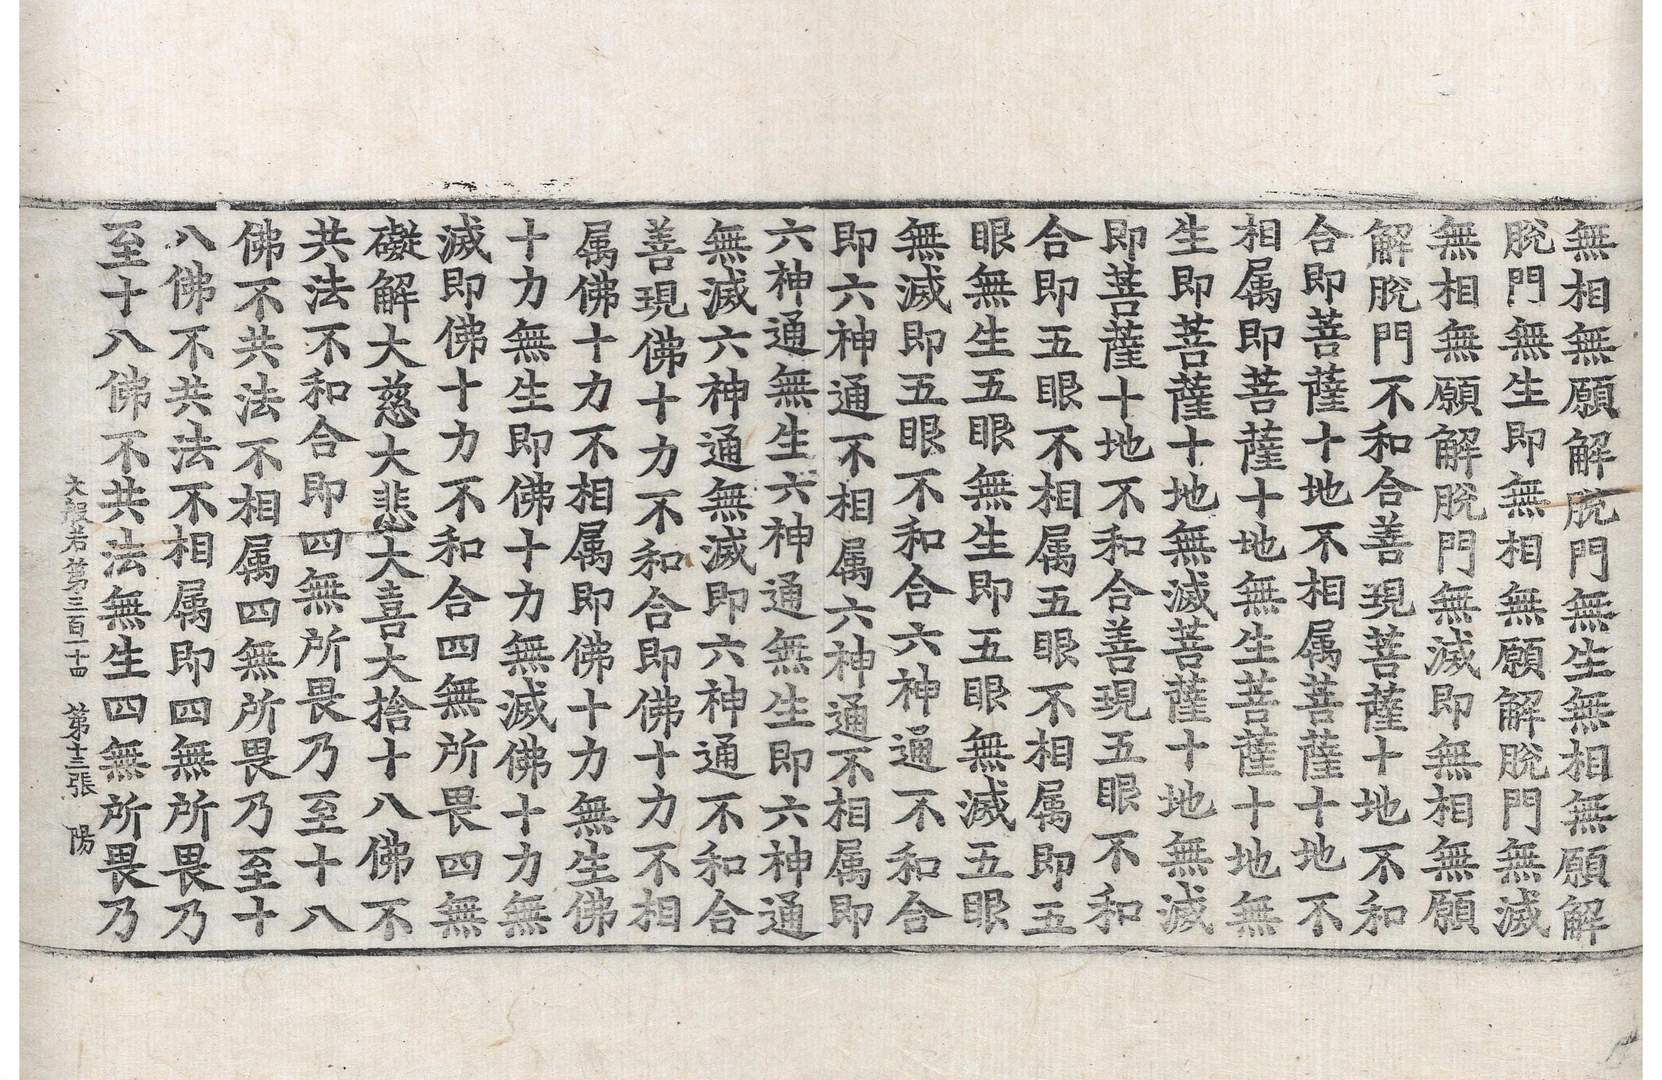 無相無願解脫門無生無相無願解
脫門無生即無相無願解脫門無滅
無相無願解脫門無滅即無相無願
解脫門不和合善現菩薩十地不和
合即菩薩十地不相属菩薩十地不
相属即菩薩十地無生菩薩十地無
生即菩薩十地無滅菩薩十地無滅
即菩薩十地不和合善現五眼不和
合即五眼不相属五眼不相属即五
眼無生五眼無生即五眼無滅五眼
無滅即五眼不和合六神通不和合
即六神通不相属六神通不相属即
六神通無生六神通無生即六神通
無滅六神通無滅即六神通不和合
善現佛十力不和合即佛十力不相
属佛十力不相属即佛十力無生佛
十力無生即佛十力無滅佛十力無
滅即佛十力不和合四無所畏四無
礙解大慈大悲大喜大捨十八佛不
共法不和合即四無所畏乃至十八
佛不共法不相属四無所畏乃至十
八佛不共法不相属即四無所畏乃
至十八佛不共法無生四無所畏乃
大般若第三百一十四 第十三張 陽